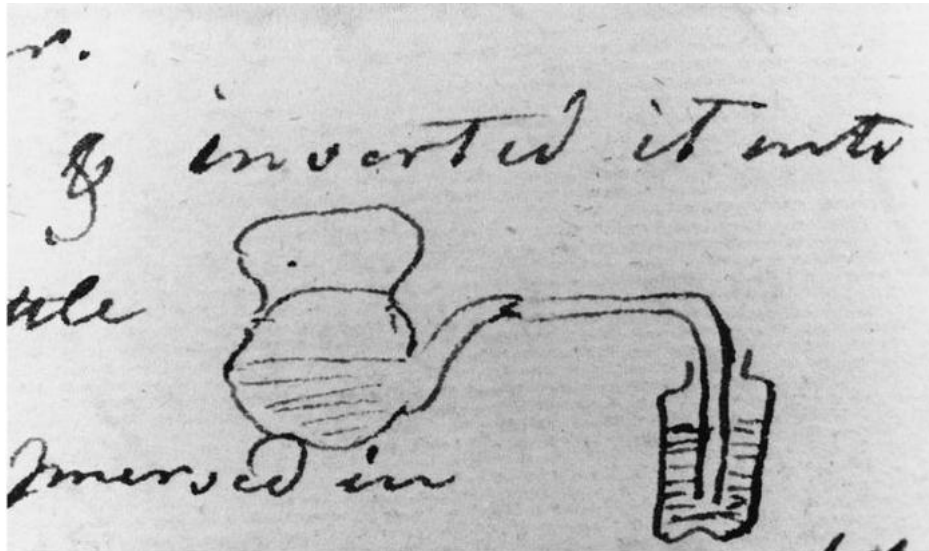 r.
& inserted it into
ttle
Immersed in